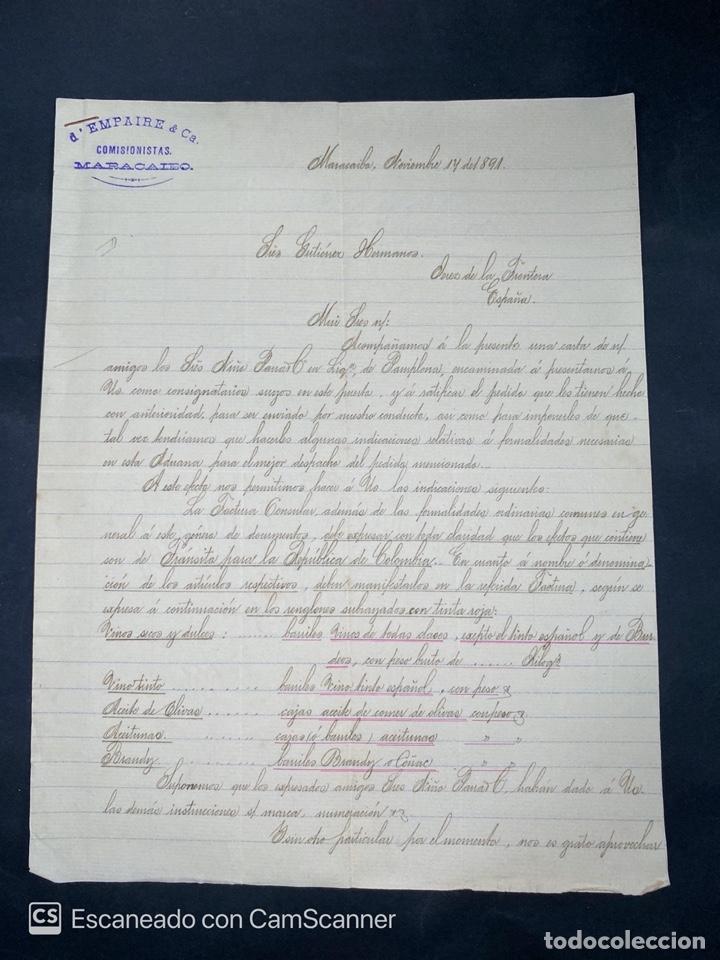 d'EMPAIRE & Ca.
COMISIONISTAS.
MARACAIBO.
Maracaibo, Noviembre 17 de 1891.
Sres Gutiérrez Hermanos.
Jerez de la Frontera
España.
Mui Sres n/:
Acompañamos á la presente una carta de n/
amigos los Sres Niño Pana & C en Liqn, de Pamplona, encaminada á presentarnos á
Us como consignatarios suyos en este puerto, y á ratificar el pedido que les tienen hecho
con anterioridad, para ser enviado por nuestro conducto, asi como para imponerles de que
tal vez tendríamos que hacerles algunas indicaciones relativas á formalidades necesarias
en esta Aduana para el mejor despacho del pedido mencionado.
A este efecto nos permitimos hacer á Us las indicaciones siguientes:
La Factura Consular, además de las formalidades ordinarias comunes en ge-
neral á este género de documentos, debe expresar con toda claridad que los efectos que contiene
son de Tránsito para la República de Colombia. En cuanto á nombre ó denomina-
ción de los artículos respectivos, deben manifestarlos en la referida Factura, según se
expresa á continuación en los renglones subrayados con tinta roja:
Vinos secos y dulces: ...... barriles Vinos de todas clases, excepto el tinto español y de Bur-
deos, con peso bruto de ...... Kilogs
Vino tinto ........ barriles Vino tinto español, con peso &
Aceite de Olivas ...... cajas aceite de comer de olivas con peso &
Aceitunas ........ cajas (ó barriles) aceitunas " "
Brandy ........ barriles Brandy o Coñac " "
Suponemos que los expresados amigos Sres Niño Pana & C, habrán dado á Us
las demás instrucciones s/ marca, numeración &
Y sin otro particular por el momento, nos es grato aprovechar
CS Escaneado con CamScanner
todocoleccion